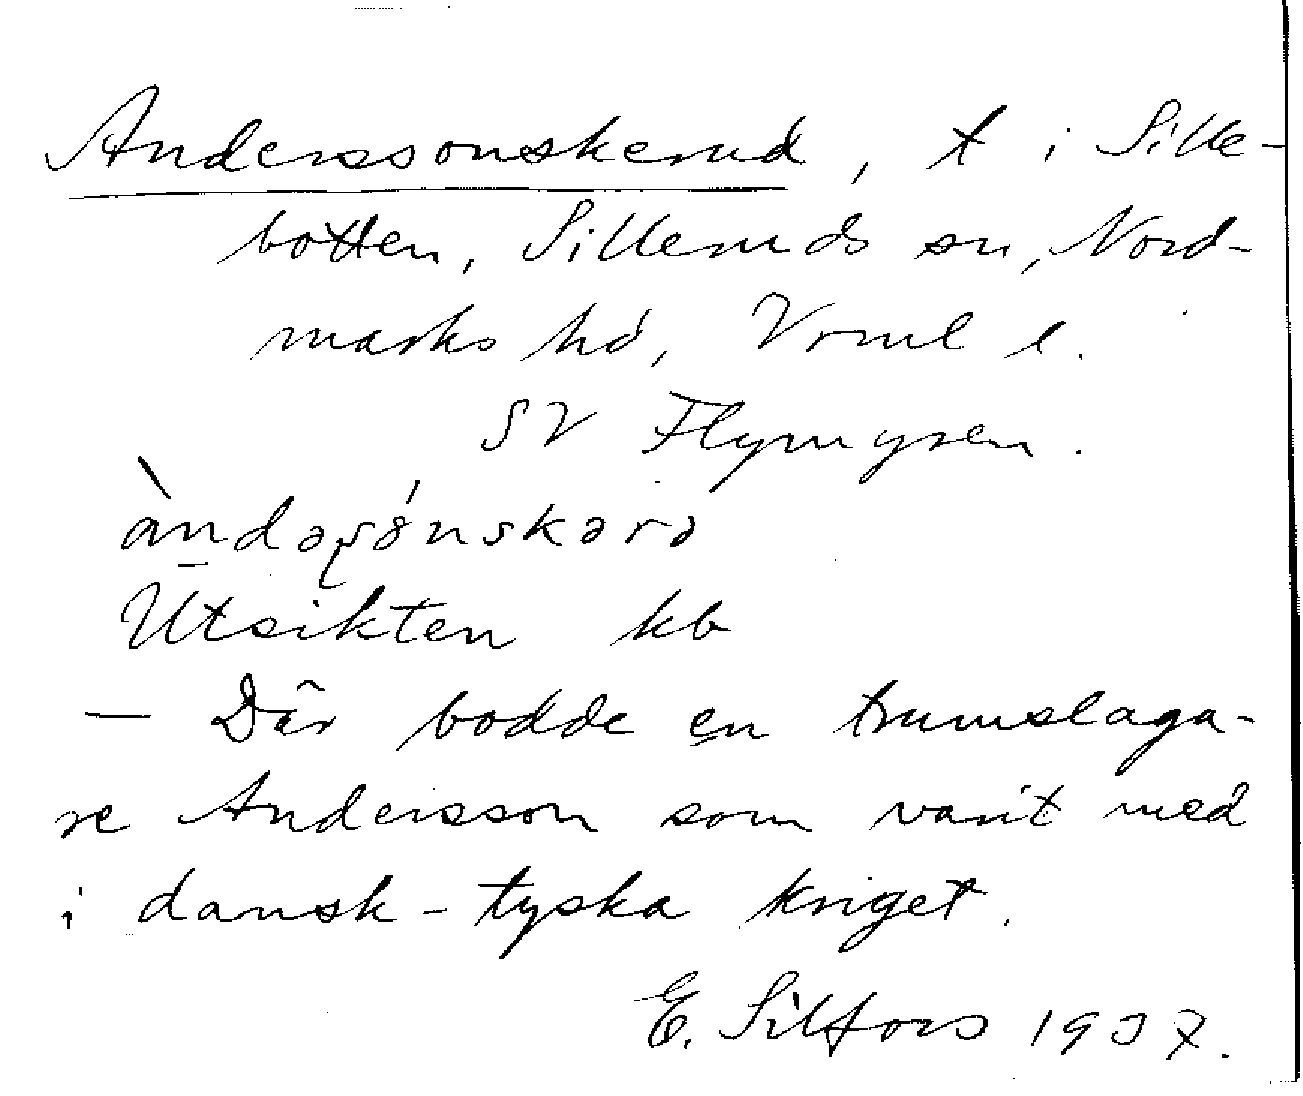 Anderssonskerud, t i Sille-
botten, Silleruds sn, Nord-
marks hd, Vrml l.
SV Flymyren.
àndəʂónskərə
Utsikten kb
— Där bodde en trumslaga-
re Andersson som varit med
i dansk-tyska kriget.
E. Silfors 1937.